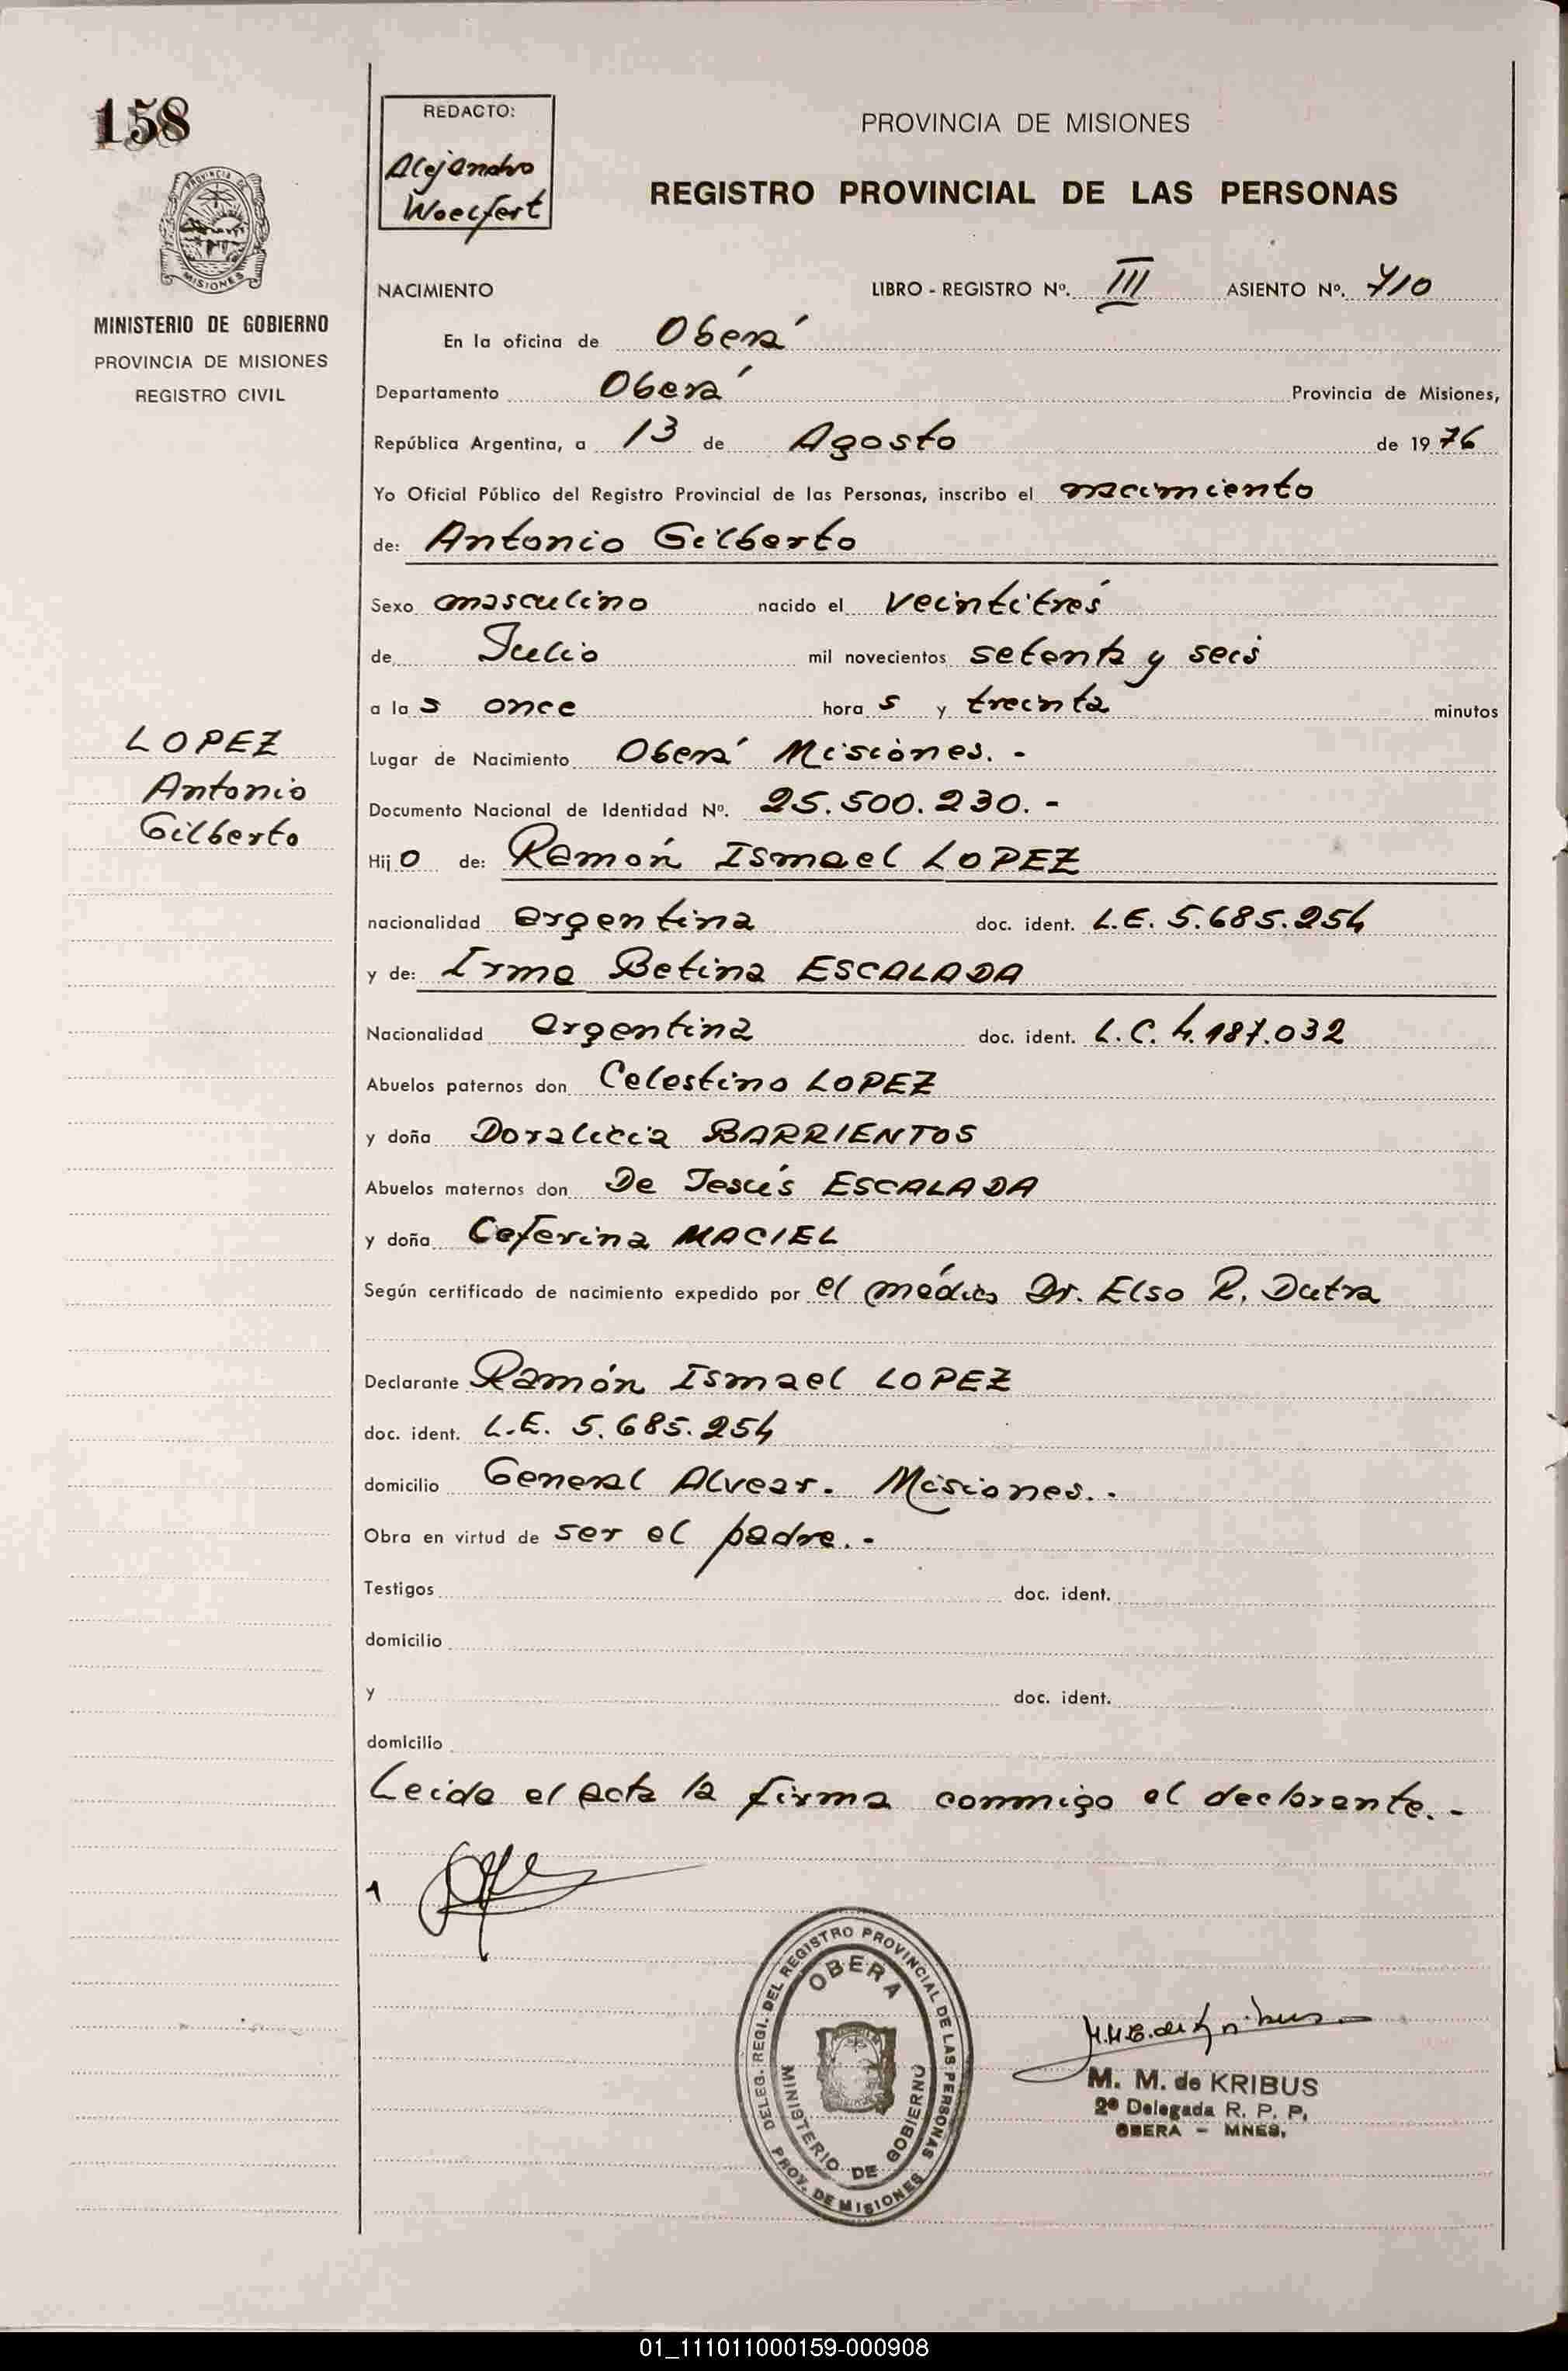 158
REDACTO:
Alejandro
Woelfert
PROVINCIA DE MISIONES
REGISTRO PROVINCIAL DE LAS PERSONAS
PROVINCIA DE
MISIONES
MINISTERIO DE GOBIERNO
PROVINCIA DE MISIONES
REGISTRO CIVIL
NACIMIENTO LIBRO - REGISTRO Nº. III ASIENTO Nº. 710
En la oficina de Oberá
Departamento Oberá Provincia de Misiones,
República Argentina, a 13 de Agosto de 19 76
Yo Oficial Público del Registro Provincial de las Personas, inscribo el nacimiento
de: Antonio Gilberto
Sexo masculino nacido el veintitrés
de Julio mil novecientos setenta y seis
a la s once hora s y treinta minutos
LOPEZ
Antonio
Gilberto
Lugar de Nacimiento Oberá Misiones. -
Documento Nacional de Identidad Nº. 25.500.230. -
Hij o de: Ramón Ismael LOPEZ
nacionalidad argentina doc. ident. L.E. 5.685.254
y de: Irma Betina ESCALADA
Nacionalidad argentina doc. ident. L.C. 4.187.032
Abuelos paternos don Celestino LOPEZ
y doña Doralicia BARRIENTOS
Abuelos maternos don De Jesús ESCALADA
y doña Ceferina MACIEL
Según certificado de nacimiento expedido por el médico Dr. Elso R. Dutra
Declarante Ramón Ismael LOPEZ
doc. ident. L.E. 5.685.254
domicilio General Alvear. Misiones. -
Obra en virtud de ser el padre. -
Testigos doc. ident.
domicilio
y doc. ident.
domicilio
Leida el acta la firma conmigo el declarante. -
DELEG. REGI. DEL REGISTRO PROVINCIAL DE LAS PERSONAS
OBERA
MINISTERIO DE GOBIERNO
PROV. DE MISIONES
M. M. de KRIBUS
2ª Delegada R. P. P.
OBERA - MNES.
01_111011000159-000908